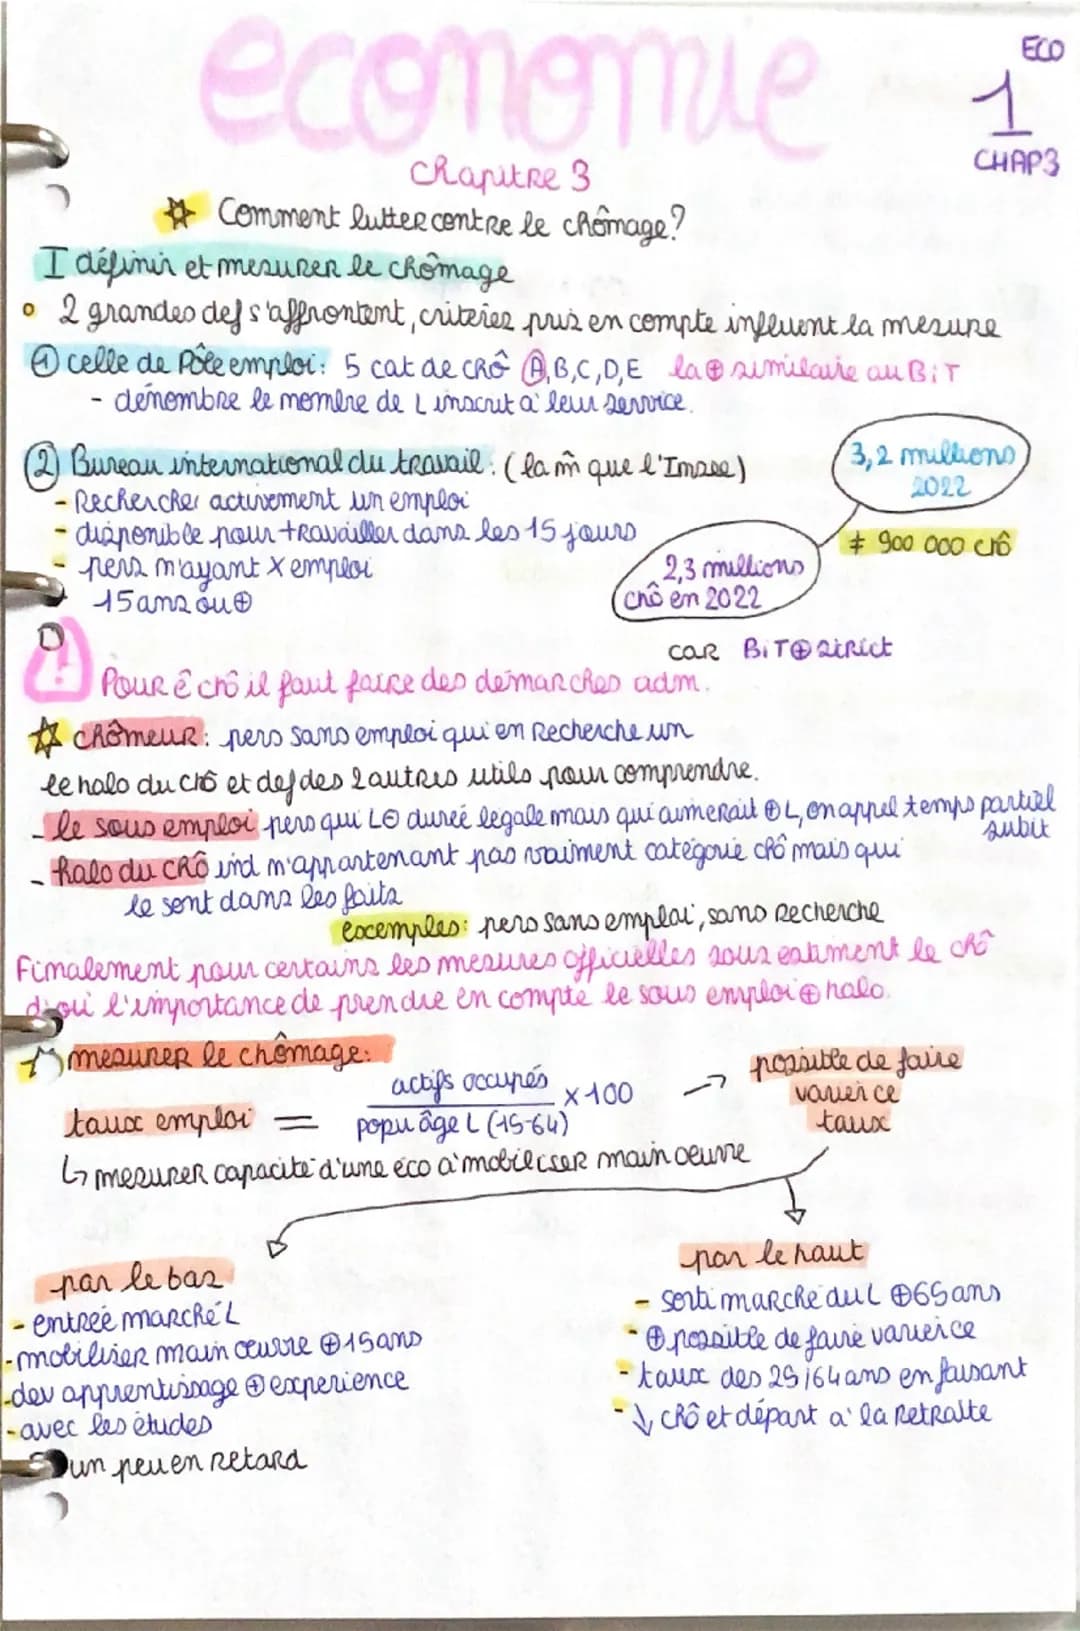 economie
ECO
1
CHAP3
Chapitre 3
Comment lutter contre le chômage?
I définir et mesurer le chômage
2 grandes def s'affrontent, criteres pris en compte influent la mesure
① celle de Pôle emploi: 5 cat de chô A,B,C,D,E la ⊕ similaire au BiT
- dénombre le nombre de L inscrit à leur service.
② Bureau international du travail: (la m̂ que l'Insee)
3,2 millions
2022
- Rechercher activement un emploi
- disponible pour travailler dans les 15 jours
≠ 900 000 chô
- pers n'ayant X emploi
2,3 millions
chô en 2022
15ans ou ⊕
car BiT ⊕ strict
!
Pour ê chô il faut faire des démarches adm.
chômeur: pers sans emploi qui en recherche un
le halo du chô et def des 2 autres utils pour comprendre.
- le sous emploi pers qui L ⊖ durée légale mais qui aimerait ⊕ L, on appel temps partiel
subit
- halo du chô ind n'appartenant pas vraiment catégorie chô mais qui
le sont dans les faits
exemples: pers sans emploi, sans recherche
Finalement pour certains les mesures officielles sous estiment le chô
d'où l'importance de prendre en compte le sous emploi ⊕ halo.
mesurer le chômage:
taux emploi = actifs occupés / popu âge L (15-64) x100 → possible de faire
varier ce
taux
↳ mesurer capacité d'une éco à mobiliser main oeuvre
par le bas
- entrée marché L
- mobiliser main œuvre ⊕ 15 ans
- dev apprentissage ⊕ experience
- avec les études
un peu en retard
par le haut
- sorti marché du L ⊕ 65 ans
- ⊕ possible de faire varier ce
- taux des 25/64 ans en faisant
- ↓ chô et départ à la retraite